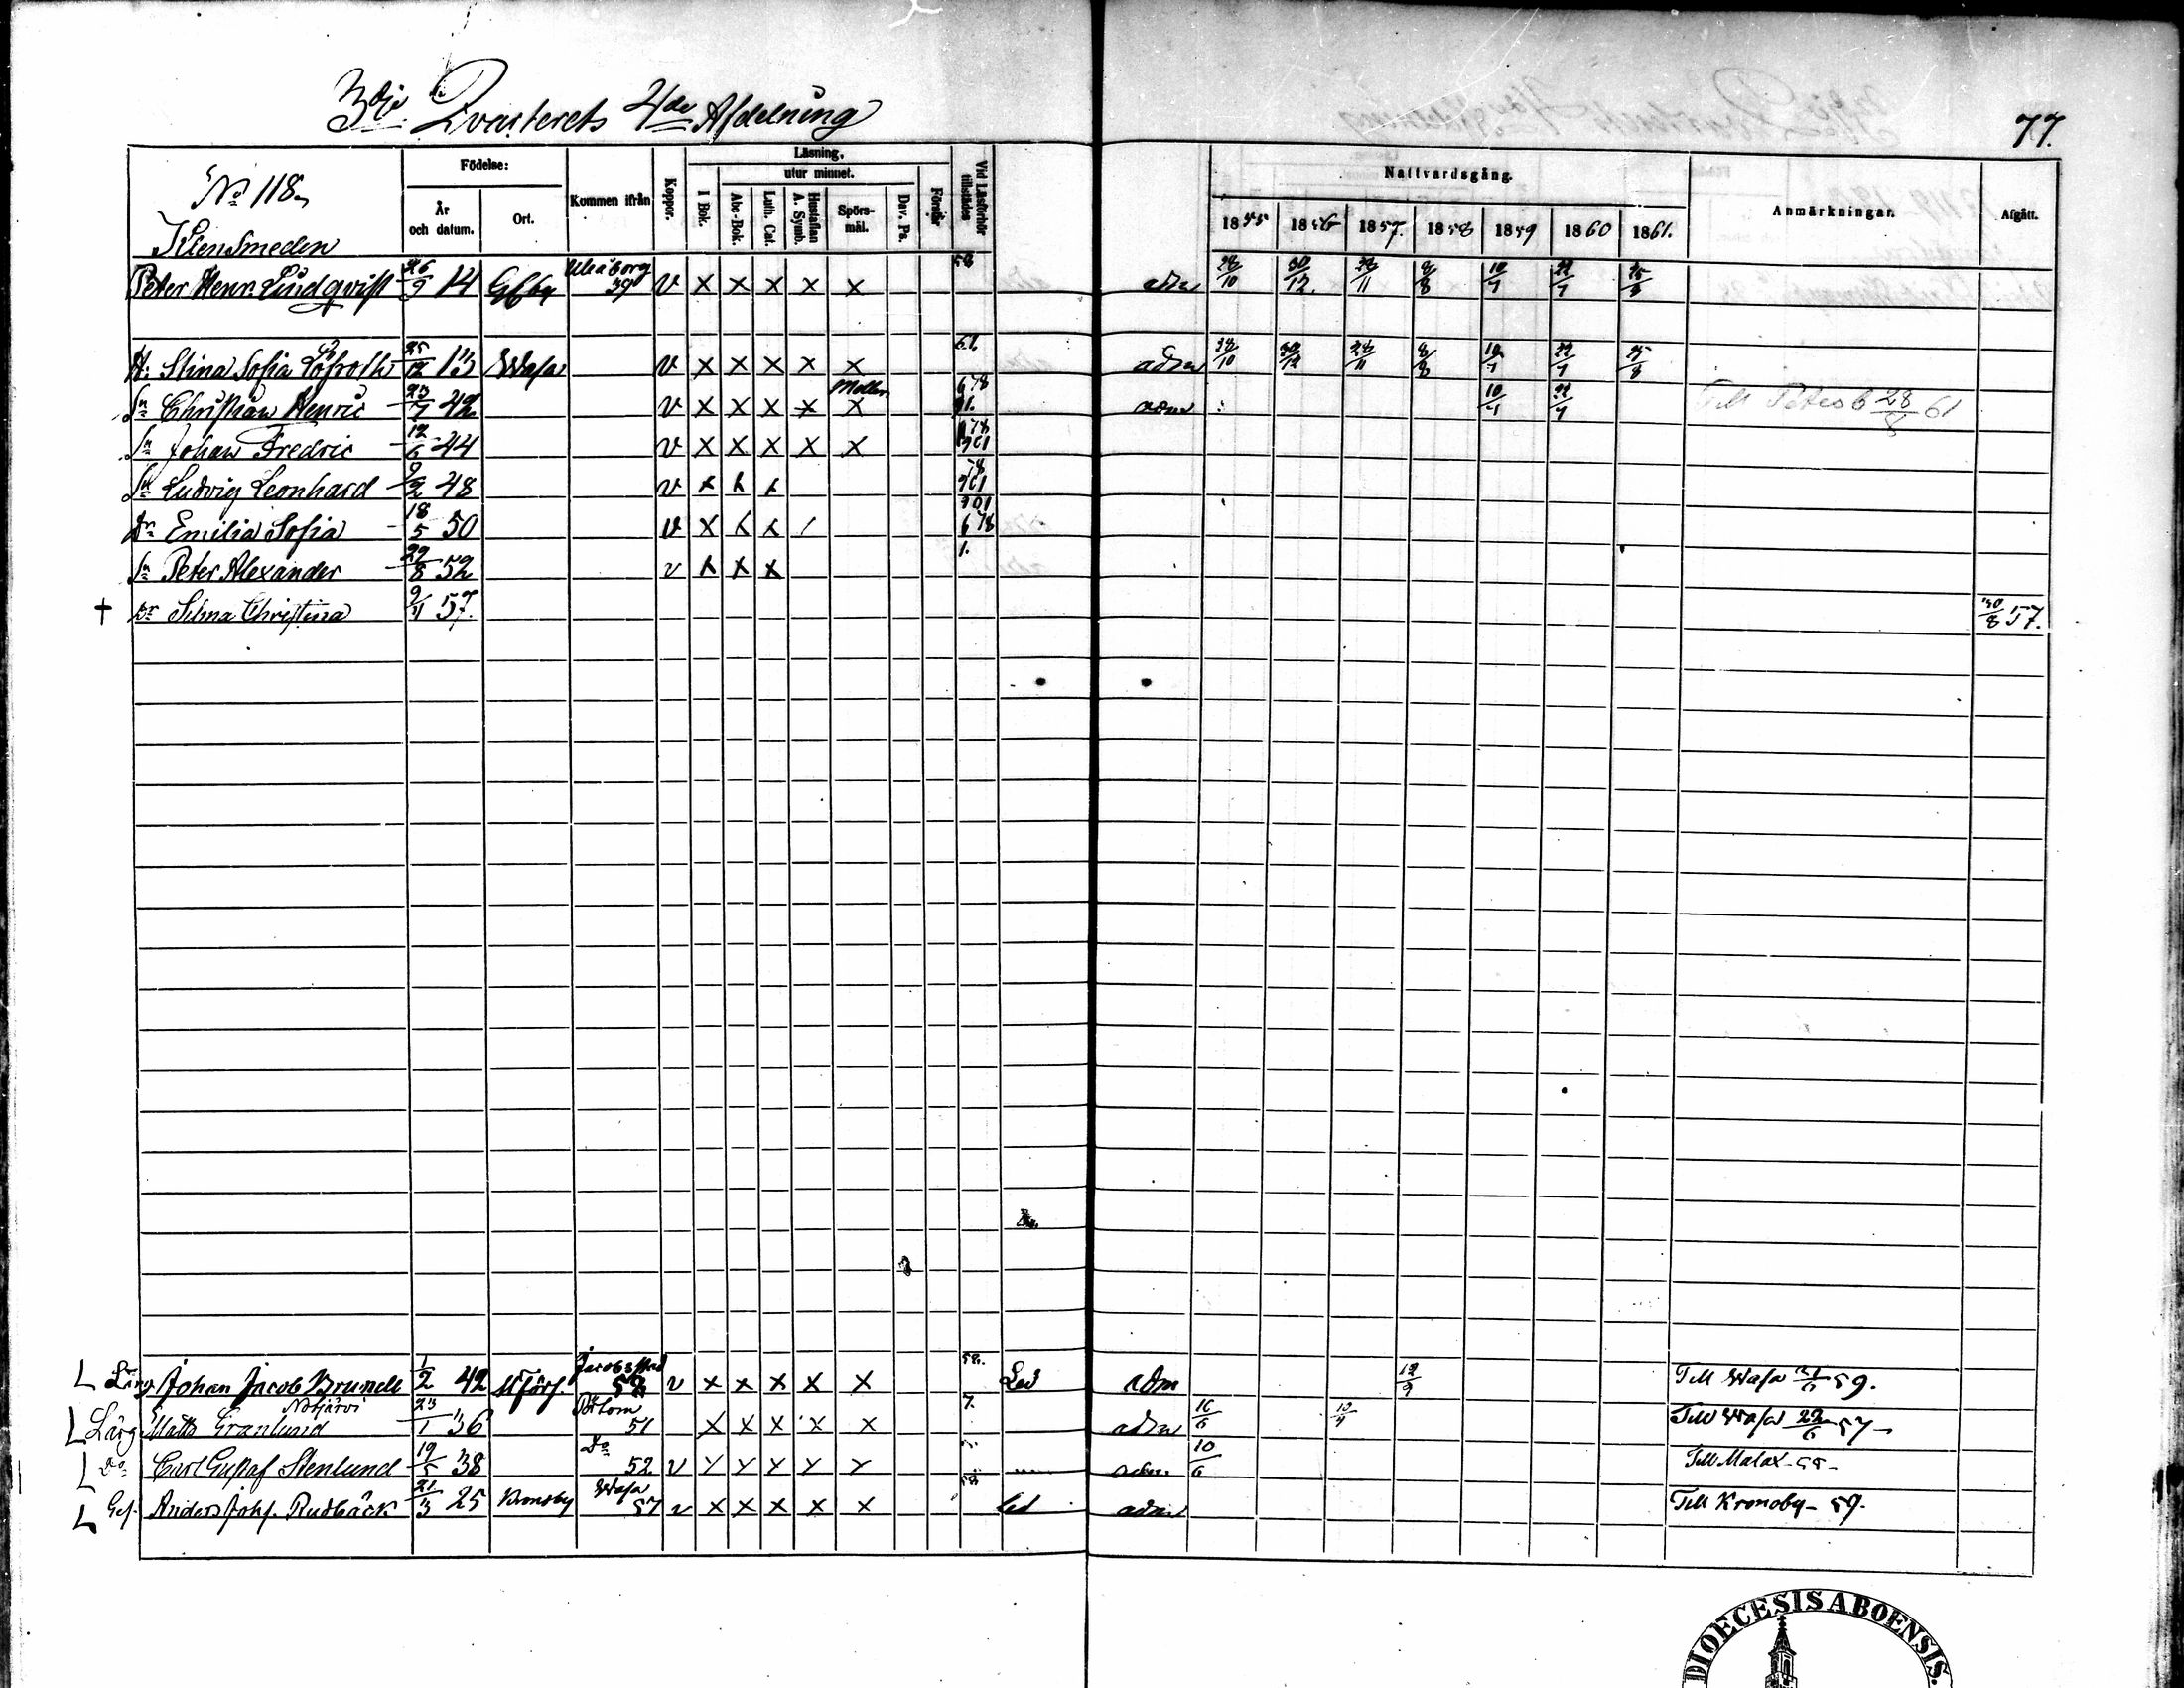 3dje Qvarterets 4de Afdelning
77.
No 118,
Klensmeden
Födelse:
År och datum.
Ort.
Kommen ifrån
Koppor.
Läsning,
utur minnet.
I Bok.
Abc-Bok.
Luth. Cat.
Hustaflan A. Symb.
Spörs-mål.
Dav. Ps.
Förstår
Vid Läsförhör tillstädes
Nattvardsgång.
1855 1856 1857. 1858 1859 1860 1861.
Anmärkningar.
Afgått.
Peter Henr. Lindqvist 26/9 14 Uleåborg 39 v x x x x x adm 28/10 30/12. 28/11 8/8 10/7 22/7 25/8
H: Stina Sofia Löfroth 25/12 13 Wasa v x x x x x 61. adm 28/10 30/12 28/11 8/8 10/7 22/7 25/8
Sn Christian Henric 23/7 42 v x x x x x 678 adm 10/7 22/7 28/8 61
Sn Johan Fredric 12/6 44 v x x x x x
Sn Ludvig Leonhard 9/2 48 v x x x
Dr Emilia Sofia 18/5 50 v x x x 678
Sn Peter Alexander 29/8 52 v x x x
† Dr Selma Christina 9/4 57. 30/8 57.
Lärg Johan Jacob Brunell 1/2 42 Jacobstad 58 v x x x x x 58. Led adm 12/9 Till Wasa 59.
Lärg Matts Granlund 23/1 36 Pörtom 51 x x x x x 7. adm 16/6 10/4 Till Wasa 22/6 57
Do Carl Gustaf Stenlund 19/5 38 Do 52 v x x x x x adm. 10/6 Till Malax
Ges. Anders Joh. Rudbäck 21/3 25 Kronoby Wasa 57 v x x x x x 58 led adm Till Kronoby 59.
DIOECESIS ABOENSIS.